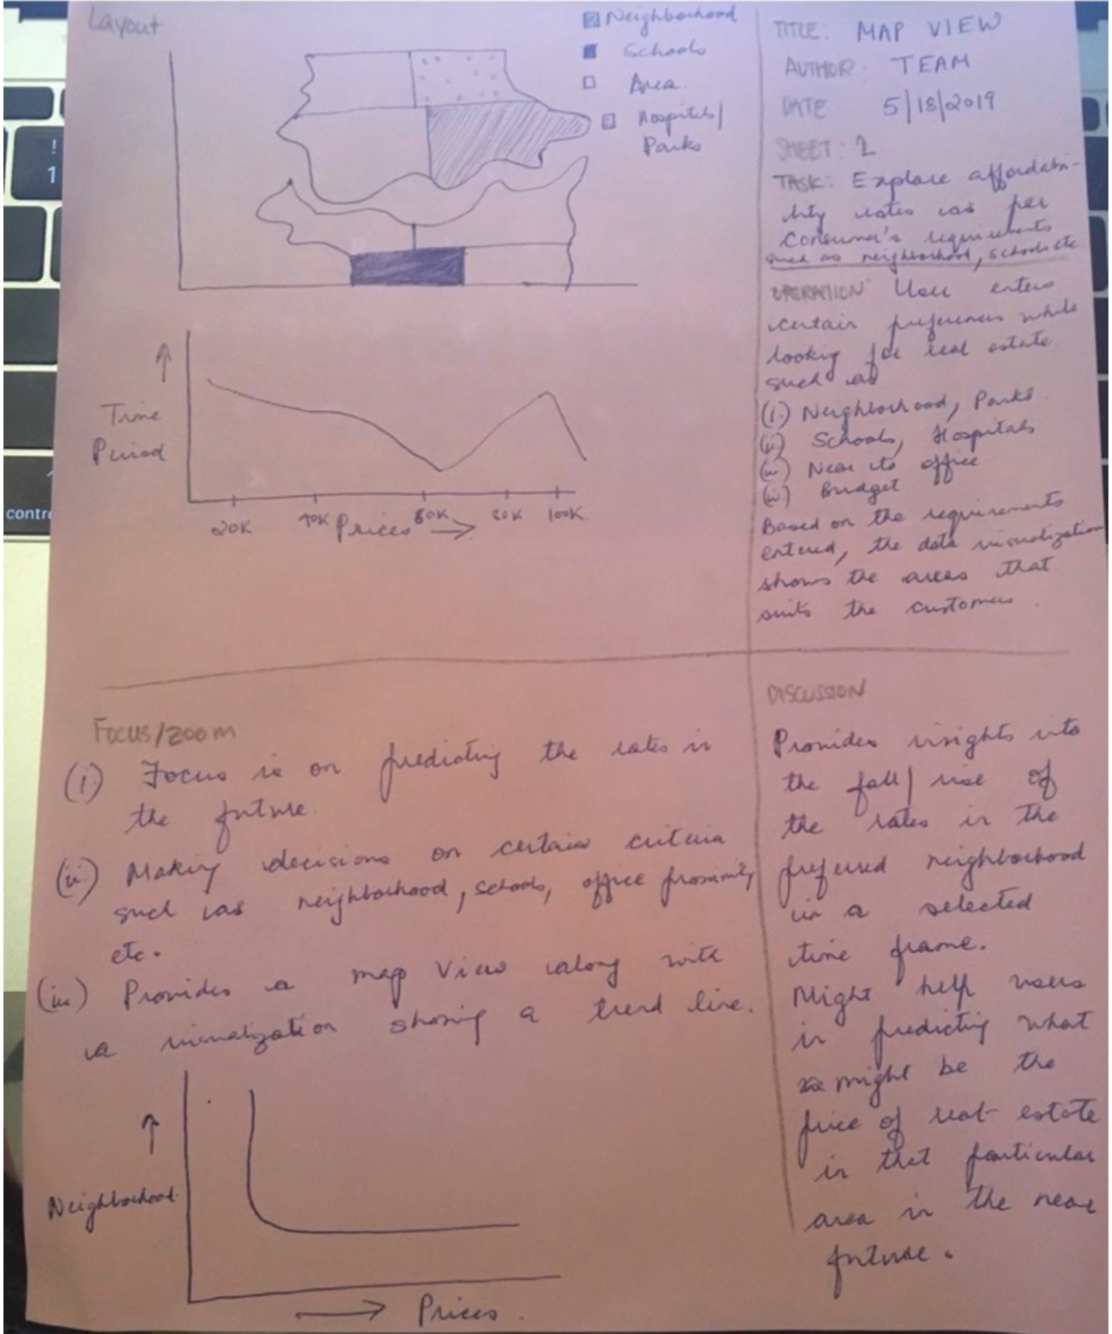 Layout
Neighborhood
Schools
Area
Hospitals/
Parks
Time
Period
20K
40K
Prices
60K
80K
100K
TITLE: MAP VIEW
AUTHOR: TEAM
DATE 5/18/2019
SHEET: 2
TASK: Explore affordabi-
lity rates as per
Consumer's requirements
such as neighborhood, schools etc
OPERATION User enters
certain preferences while
looking for real estate
such as
(i) Neighborhood, Parks
(ii) Schools, Hospitals
(iii) Near to office
(iv) Budget
Based on the requirements
entered, the data visualization
shows the areas that
suits the customers.
Focus/Zoom
(i) Focus is on predicting the rates in
the future.
(ii) Making decisions on certain criteria
such as neighborhood, schools, office proximity
etc.
(iii) Provides a map view along with
a visualization showing a trend line.
Neighborhood
Prices
DISCUSSION
Provides insights into
the fall/rise of
the rates in the
preferred neighborhood
in a selected
time frame.
Might help users
in predicting what
might be the
price of real estate
in that particular
area in the near
future.
!
1
control